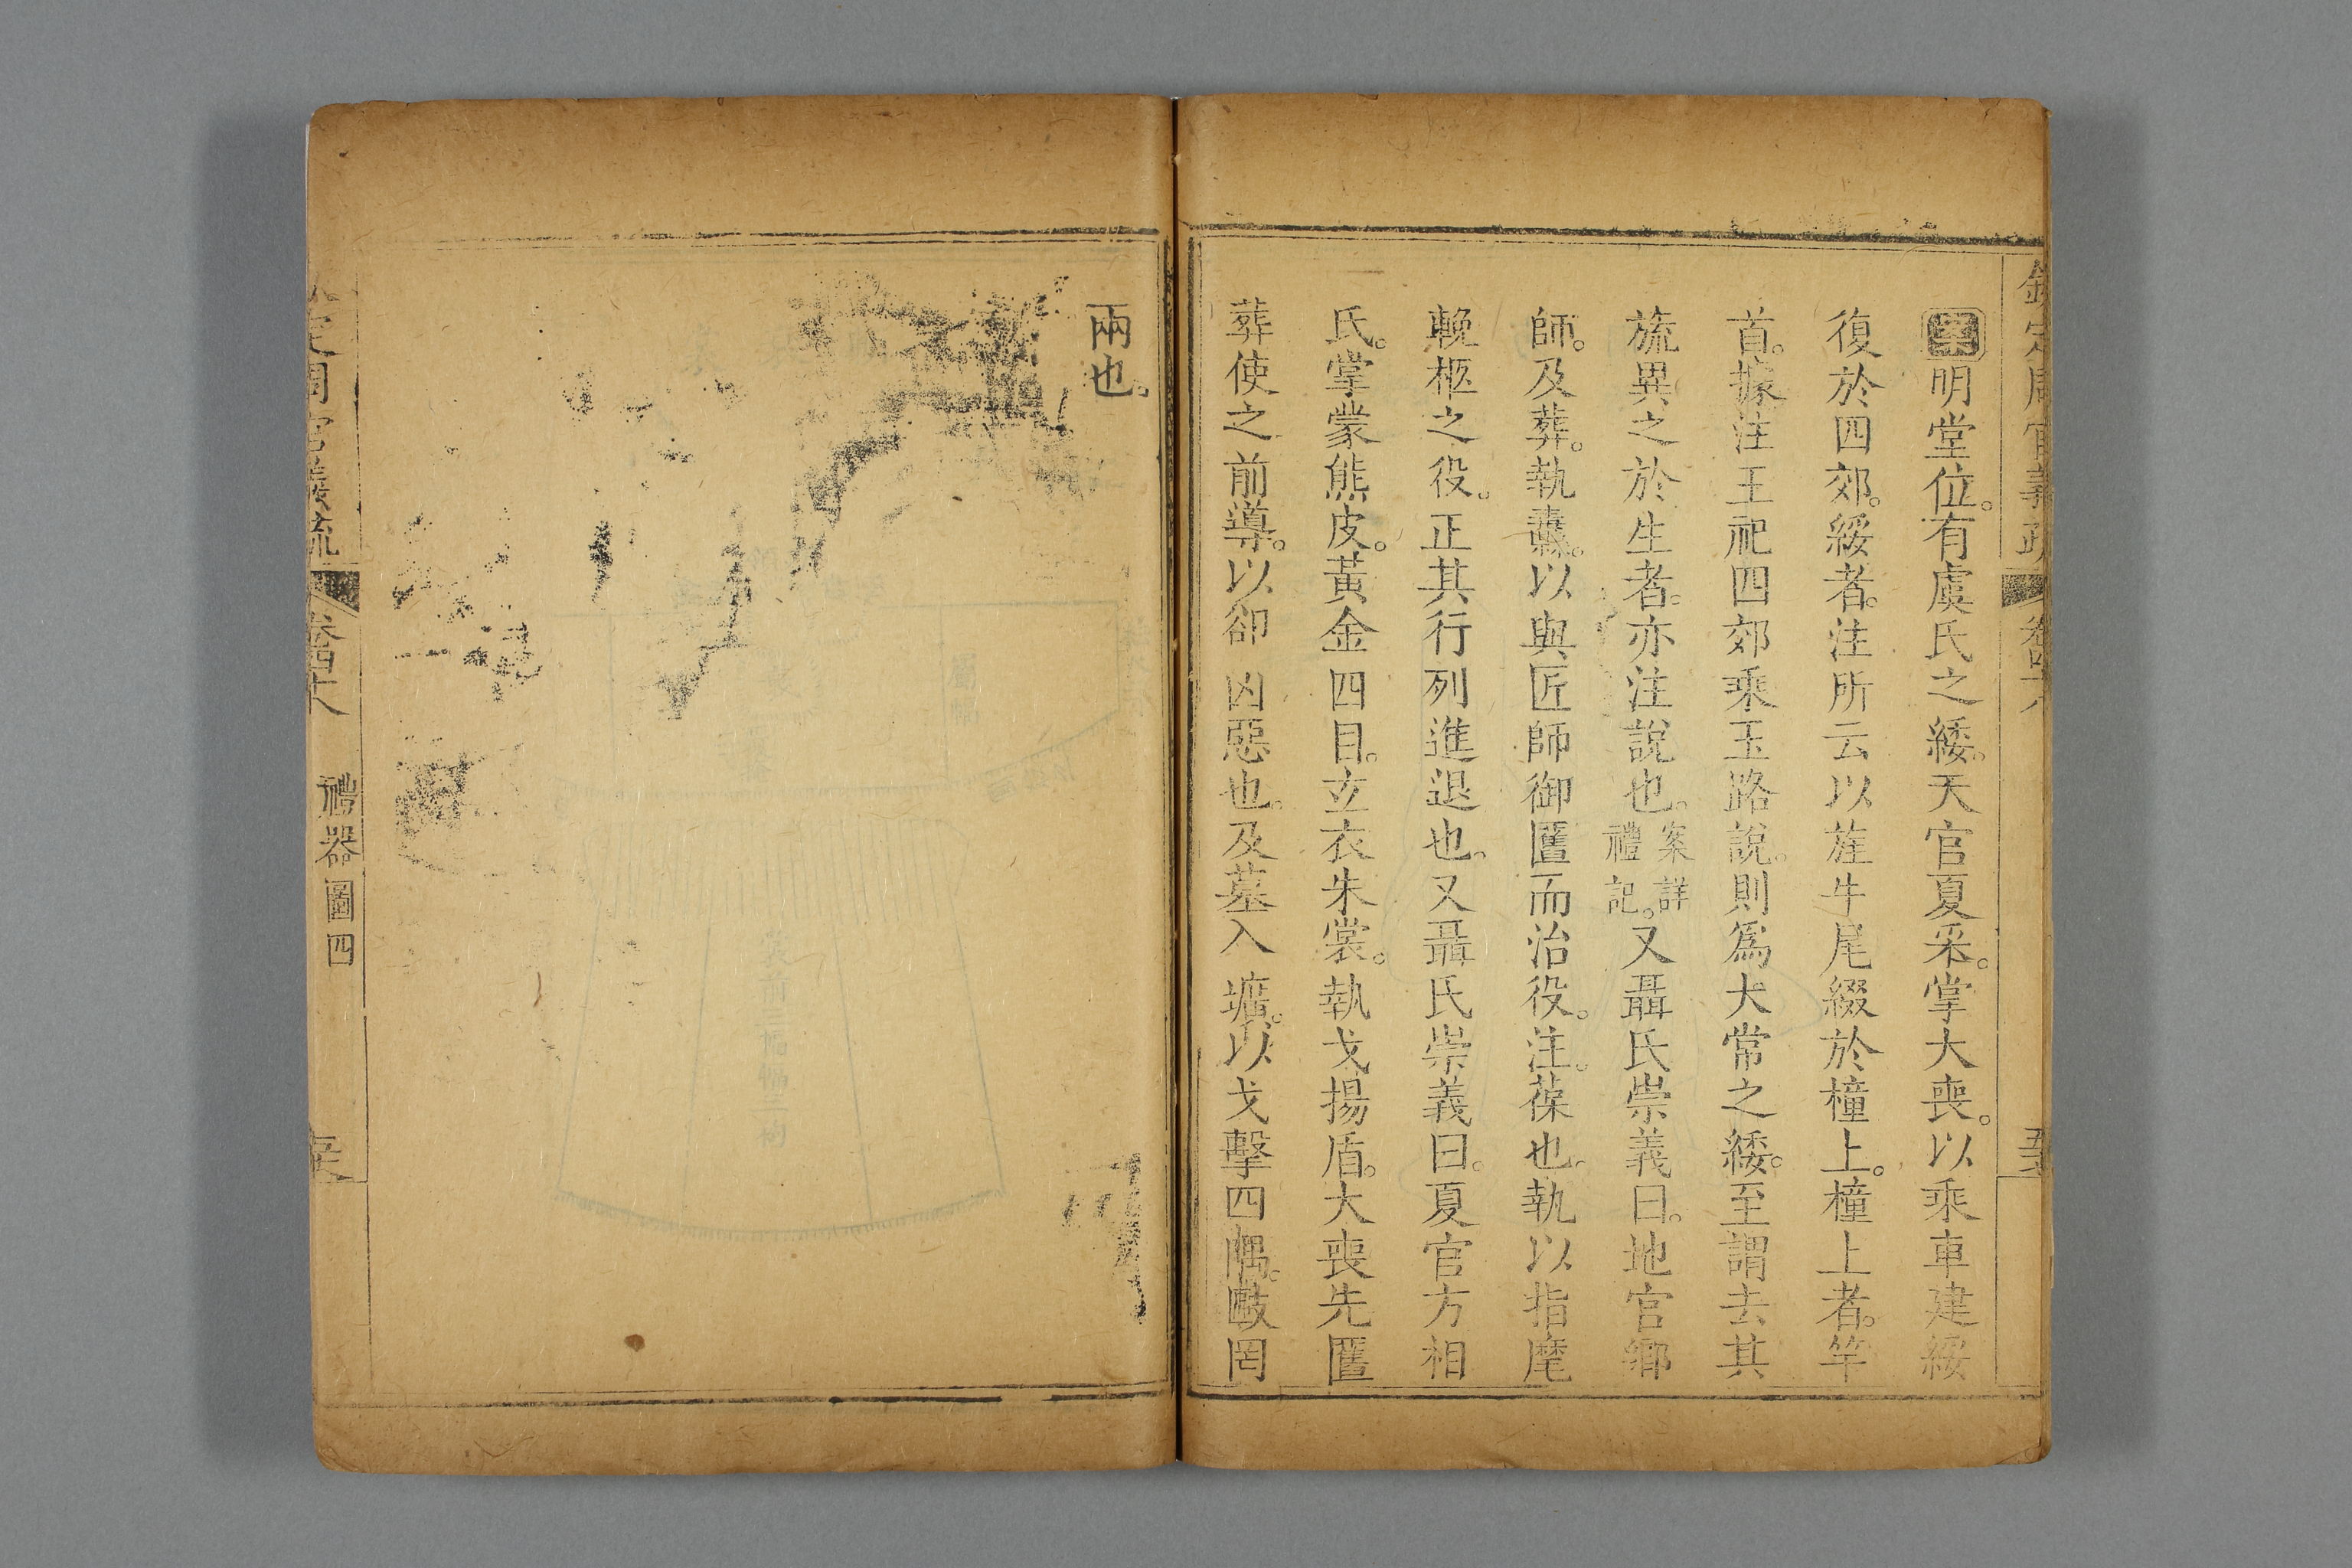 欽定周官義疏 卷四十八
案明堂位。有虞氏之緌。天官夏采。掌大喪。以乘車建綏
復於四郊。綏者。注所云以旄牛尾綴於橦上。橦上者。竿
首。據注王祀四郊乘玉路說。則爲大常之緌。至謂去其
旒異之於生者。亦注說也。案詳禮記。又聶氏崇義曰。地官鄉
師。及葬。執纛。以與匠師御匶而治役。注。葆也。執以指麾
輓柩之役。正其行列進退也。又聶氏崇義曰。夏官方相
氏。掌蒙熊皮。黃金四目。玄衣朱裳。執戈揚盾。大喪先匶
葬使之前導。以卻凶惡也。及墓入壙。以戈擊四隅。敺罔
兩也。
定周官義疏 卷四十八 禮器圖四